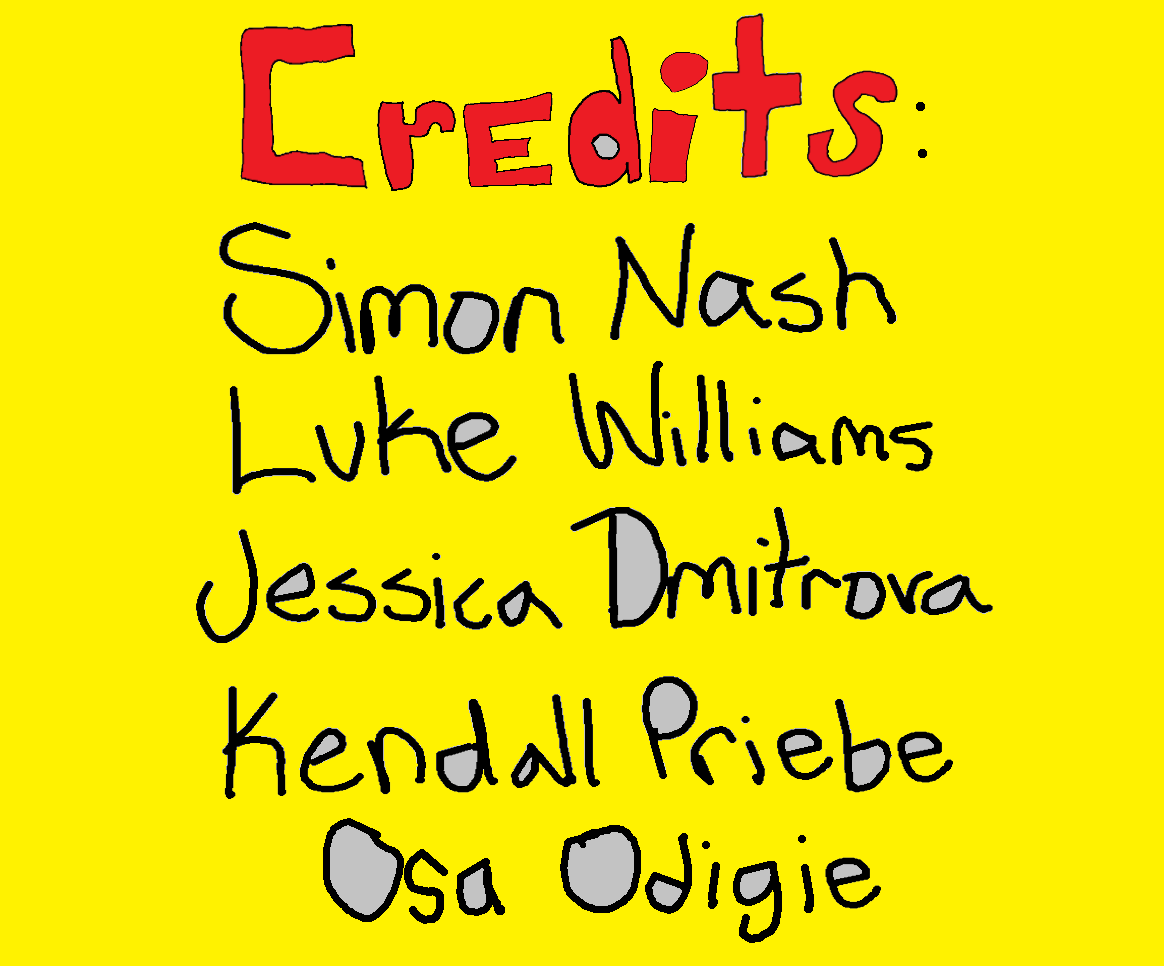 Credits:
Simon Nash
Luke Williams
Jessica Dmitrova
Kendall Priebe
Osa Odigie